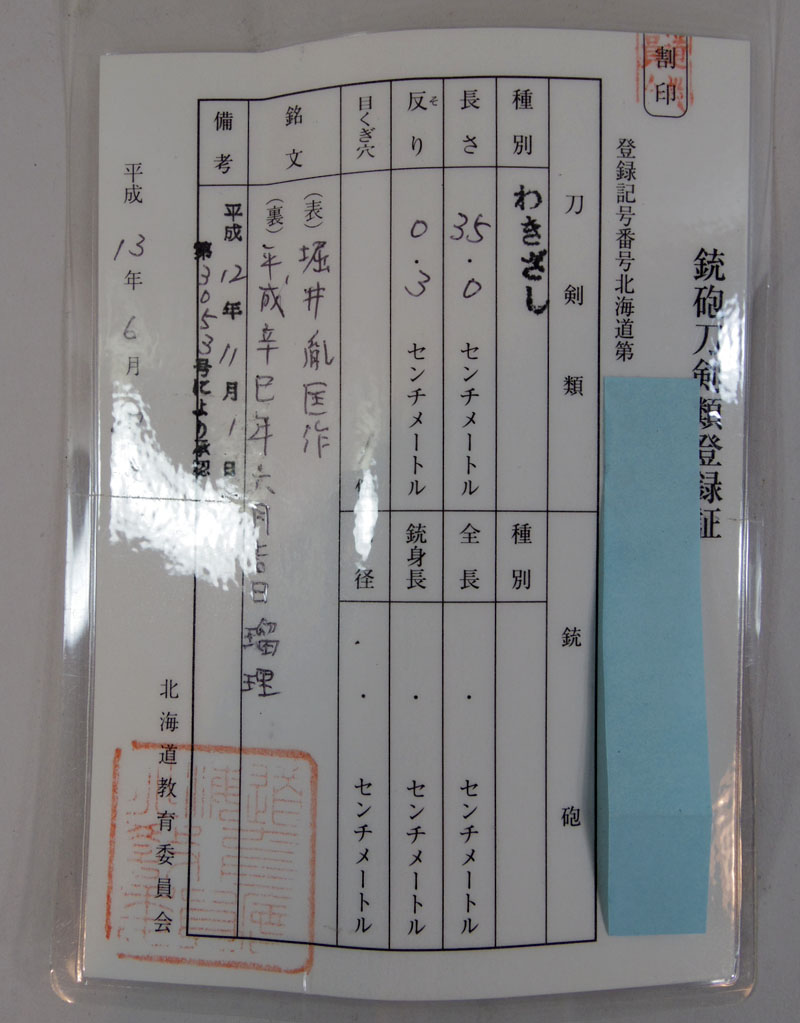 割印
銃砲刀剣類登録証
登録記号番号北海道第
刀剣類
銃砲
種別
わきざし
種別
長さ
35.0センチメートル
全長
.センチメートル
反り
そ
0.3センチメートル
銃身長
.センチメートル
目くぎ穴
径
.センチメートル
銘文
(表)堀井胤匡作
(裏)平成辛巳年六月吉日瑠理
備考
平成12年11月1日
第3053号により承認
平成13年6月
北海道教育委員会